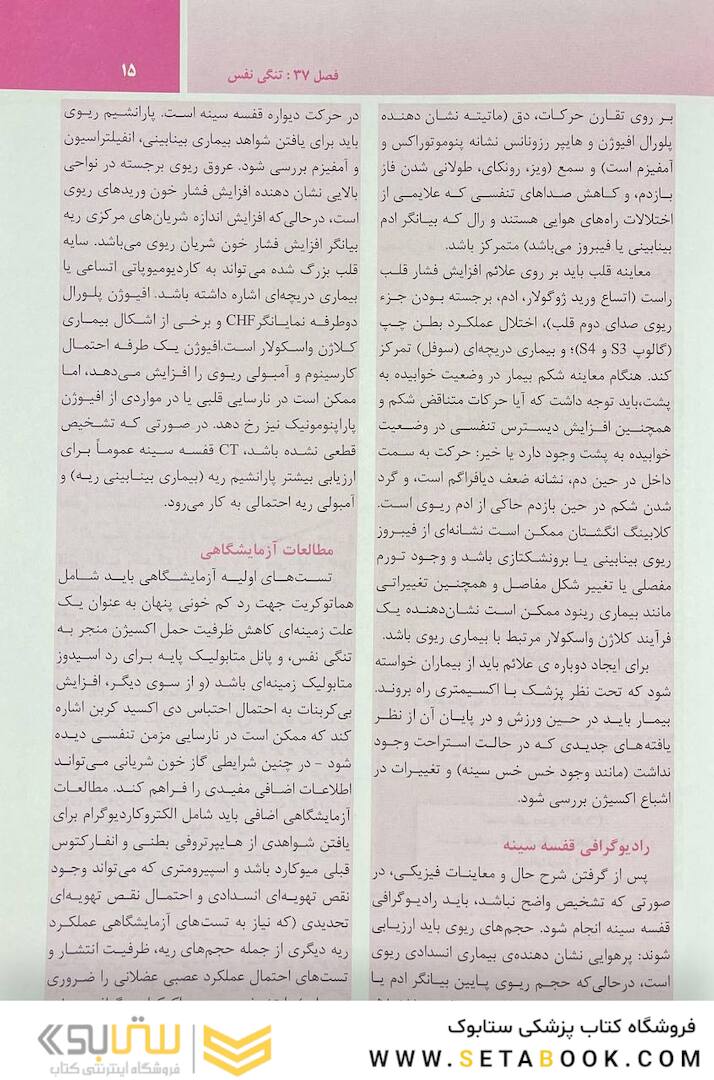 فصل ۳۷: تنگی نفس
۱۵
بر روی تقارن حرکات، دق (ماتیته نشان دهنده
پلورال افیوژن و هایپر رزونانس نشانه پنوموتوراکس و
آمفیزم است) و سمع (ویز، رونکای، طولانی شدن فاز
بازدم، و کاهش صداهای تنفسی که علایمی از
اختلالات راه‌های هوایی هستند و رال که بیانگر ادم
بینابینی یا فیبروز می‌باشد) متمرکز باشد.
معاینه قلب باید بر روی علائم افزایش فشار قلب
راست (اتساع ورید ژوگولار، ادم، برجسته بودن جزء
ریوی صدای دوم قلب)، اختلال عملکرد بطن چپ
(گالوپ S3 و S4)؛ و بیماری دریچه‌ای (سوفل) تمرکز
کند. هنگام معاینه شکم بیمار در وضعیت خوابیده به
پشت،باید توجه داشت که آیا حرکات متناقض شکم و
همچنین افزایش دیسترس تنفسی در وضعیت
خوابیده به پشت وجود دارد یا خیر: حرکت به سمت
داخل در حین دم، نشانه ضعف دیافراگم است، و گرد
شدن شکم در حین بازدم حاکی از ادم ریوی است.
کلابینگ انگشتان ممکن است نشانه‌ای از فیبروز
ریوی بینابینی یا برونشکتازی باشد و وجود تورم
مفصلی یا تغییر شکل مفاصل و همچنین تغییراتی
مانند بیماری رینود ممکن است نشان‌دهنده یک
فرآیند کلاژن واسکولار مرتبط با بیماری ریوی باشد.
برای ایجاد دوباره ی علائم باید از بیماران خواسته
شود که تحت نظر پزشک با اکسیمتری راه بروند.
بیمار باید در حین ورزش و در پایان آن از نظر
یافته‌های جدیدی که در حالت استراحت وجود
نداشت (مانند وجود خس خس سینه) و تغییرات در
اشباع اکسیژن بررسی شود.
رادیوگرافی قفسه سینه
پس از گرفتن شرح حال و معاینات فیزیکی، در
صورتی که تشخیص واضح نباشد، باید رادیوگرافی
قفسه سینه انجام شود. حجم‌های ریوی باید ارزیابی
شوند: پرهوایی نشان دهنده‌ی بیماری انسدادی ریوی
است، درحالی‌که حجم ریوی پایین بیانگر ادم یا
در حرکت دیواره قفسه سینه است. پارانشیم ریوی
باید برای یافتن شواهد بیماری بینابینی، انفیلتراسیون
و آمفیزم بررسی شود. عروق ریوی برجسته در نواحی
بالایی نشان دهنده افزایش فشار خون وریدهای ریوی
است، درحالی‌که افزایش اندازه شریان‌های مرکزی ریه
بیانگر افزایش فشار خون شریان ریوی می‌باشد. سایه
قلب بزرگ شده می‌تواند به کاردیومیوپاتی اتساعی یا
بیماری دریچه‌ای اشاره داشته باشد. افیوژن پلورال
دوطرفه نمایانگر CHF و برخی از اشکال بیماری
کلاژن واسکولار است.افیوژن یک طرفه احتمال
کارسینوم و آمبولی ریوی را افزایش می‌دهد، اما
ممکن است در نارسایی قلبی یا در مواردی از افیوژن
پاراپنومونیک نیز رخ دهد. در صورتی که تشخیص
قطعی نشده باشد، CT قفسه سینه عموماً برای
ارزیابی بیشتر پارانشیم ریه (بیماری بینابینی ریه) و
آمبولی ریه احتمالی به کار می‌رود.
مطالعات آزمایشگاهی
تست‌های اولیه آزمایشگاهی باید شامل
هماتوکریت جهت رد کم خونی پنهان به عنوان یک
علت زمینه‌ای کاهش ظرفیت حمل اکسیژن منجر به
تنگی نفس، و پانل متابولیک پایه برای رد اسیدوز
متابولیک زمینه‌ای باشد (و از سوی دیگر، افزایش
بی‌کربنات به احتمال احتباس دی اکسید کربن اشاره
کند که ممکن است در نارسایی مزمن تنفسی دیده
شود - در چنین شرایطی گاز خون شریانی می‌تواند
اطلاعات اضافی مفیدی را فراهم کند. مطالعات
آزمایشگاهی اضافی باید شامل الکتروکاردیوگرام برای
یافتن شواهدی از هایپرتروفی بطنی و انفارکتوس
قبلی میوکارد باشد و اسپیرومتری که می‌تواند وجود
نقص تهویه‌ای انسدادی و احتمال نقص تهویه‌ای
تحدیدی (که نیاز به تست‌های آزمایشگاهی عملکرد
ریه دیگری از جمله حجم‌های ریه، ظرفیت انتشار و
تست‌های احتمال عملکرد عصبی عضلانی را ضروری
فروشگاه کتاب پزشکی ستابوک
WWW.SETABOOK.COM
ستابوک
فروشگاه اینترنتی کتاب